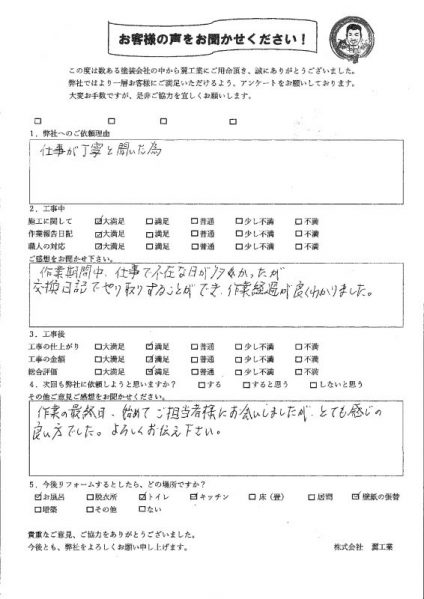 お客様の声をお聞かせください！
この度は数ある塗装会社の中から翼工業にご用命頂き、誠にありがとうございました。
弊社ではより一層お客様にご満足いただけるよう、アンケートをお願いしております。
大変お手数ですが、是非ご協力を宜しくお願いします。
□ □ □ □
1．弊社へのご依頼理由
仕事が丁寧と聞いた為
2．工事中
施工に関して ☑大満足 □満足 □普通 □少し不満 □不満
作業報告日記 ☑大満足 □満足 □普通 □少し不満 □不満
職人の対応 ☑大満足 □満足 □普通 □少し不満 □不満
ご感想をお聞かせ下さい。
作業期間中、仕事で不在な日が多かったが
交換日記でやり取りすることができ、作業経過が良くわかりました。
3．工事後
工事の仕上がり □大満足 ☑満足 □普通 □少し不満 □不満
工事の金額 □大満足 ☑満足 □普通 □少し不満 □不満
総合評価 □大満足 ☑満足 □普通 □少し不満 □不満
4．次回も弊社に依頼しようと思いますか？ □する □すると思う □しないと思う
その他ご意見ご感想をお聞かせください。
作業の最終日、始めてご担当者様にお会いしましたが、とても感じの
良い方でした。よろしくお伝え下さい。
5．今後リフォームするとしたら、どの場所ですか？
☑お風呂 □脱衣所 ☑トイレ ☑キッチン □床（畳） □居間 ☑壁紙の張替
□増築 □その他 □ない
貴重なご意見、ご協力をありがとうございました。
今後とも、弊社をよろしくお願い申し上げます。 株式会社 翼工業